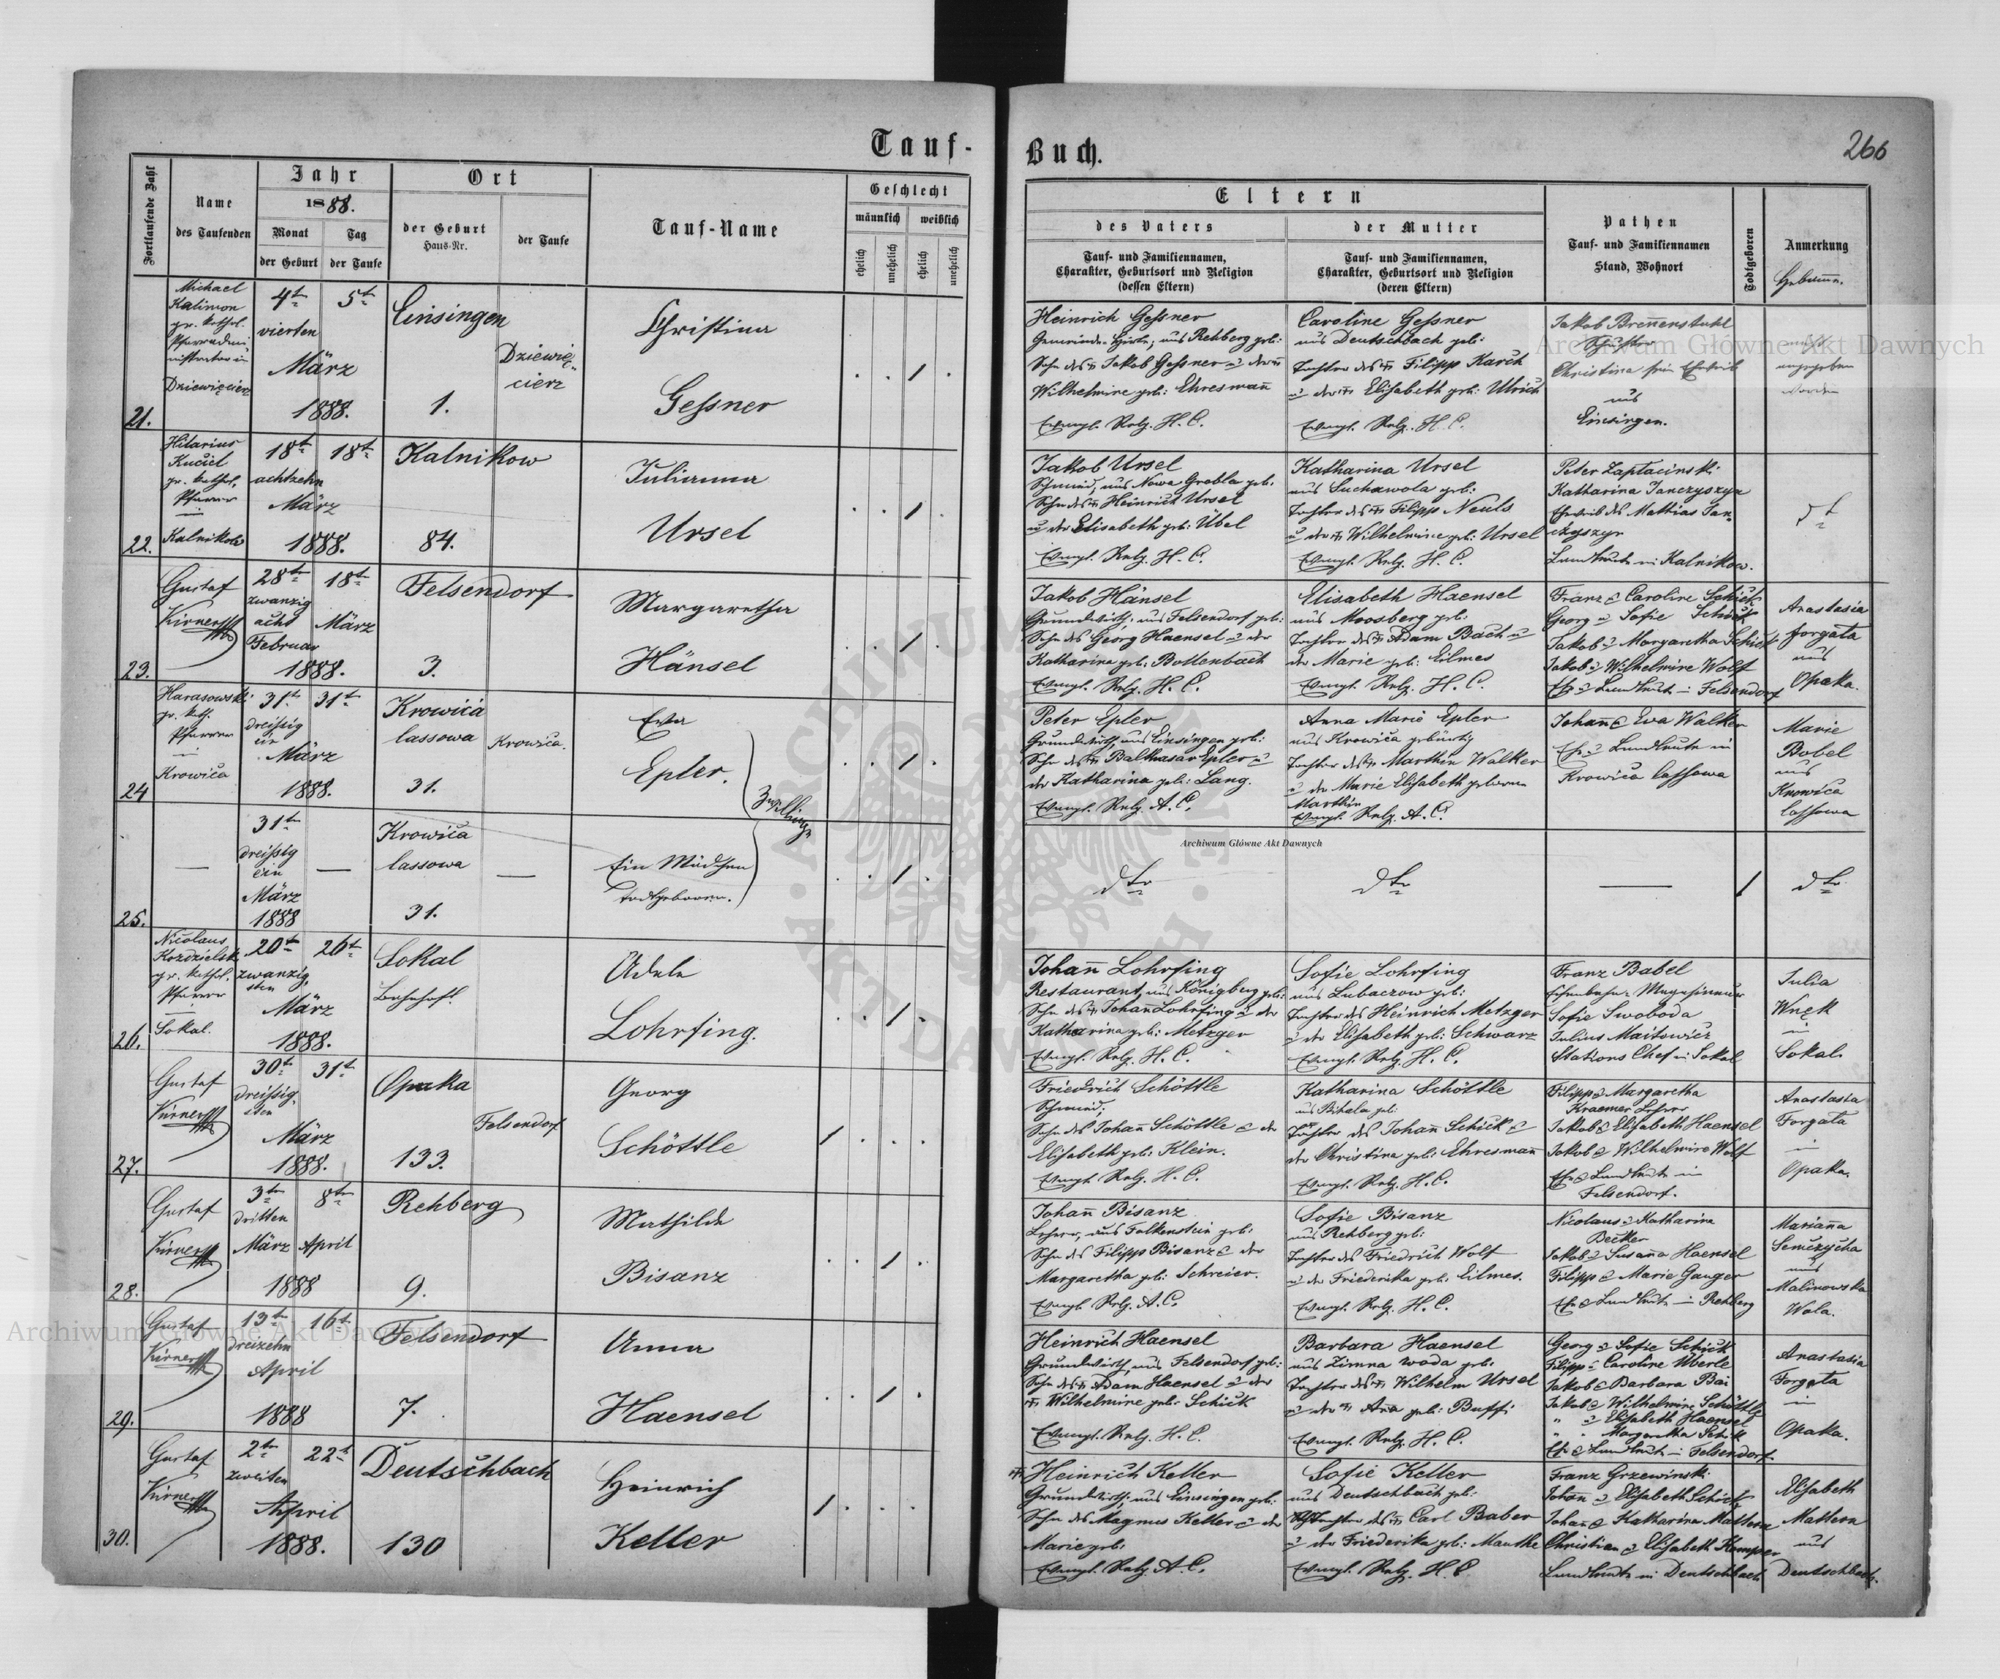 Tauf-Buch.
266
Fortlaufende Zahl
Name
des Taufenden
Jahr
1888.
Monat
der Geburt
Tag
der Taufe
Ort
der Geburt
Haus-Nr.
der Taufe
Tauf-Name
Geschlecht
männlich
weiblich
ehelich
unehelich
ehelich
unehelich
Eltern
des Vaters
Tauf- und Familiennamen,
Charakter, Geburtsort und Religion
(dessen Eltern)
der Mutter
Tauf- und Familiennamen,
Charakter, Geburtsort und Religion
(deren Eltern)
Pathen
Tauf- und Familiennamen
Stand, Wohnort
Todtgeboren
Anmerkung
Hebamme.
21.
Michael
Kalimon
gr. kathol.
Pfarradmi
nistrator in
Dziewięcierz
4t
vierten
März
1888.
5t
Einsingen
1.
Dziewię-
cierz
Christina
Gessner
Heinrich Gessner
Gemeinde Hirte, aus Rehberg geb:
Sohn des Jakob Gessner u der
Wilhelmine geb: Ehresmann
Evngl. Relg. H. C.
Caroline Gessner
aus Deutschbach geb:
Tochter des Filipp Karch
u der Elisabeth geb: Ulrich
Evngl. Relg. H. C.
Jakob Brennenstuhl
Christina sein Eheweib
aus
Einsingen.
angegeben
worden
22.
Hilarius
Kuciel
gr. kathol.
Pfarrer
in
Kalnikow
18t
achtzehn
März
1888.
18t
Kalnikow
84.
Julianna
Ursel
Jakob Ursel
Schmied, aus Nowa Grobla geb.
Sohn des Heinrich Ursel
u der Elisabeth geb: Übel
Evngl. Relg. H. C.
Katharina Ursel
aus Suchawola geb:
Tochter des Filipp Neuls
u der Wilhelmine geb: Ursel
Evngl. Relg. H. C.
Peter Zaptacinski
Katharina Janczyszyn
Eheweib des Mathias Jan-
czyszyn
Landleute in Kalnikow.
dt
23.
Gustaf
Kirner
28t
zwanzig
acht
Februar
1888.
18t
März
Felsendorf
3.
Margaretha
Hänsel
Jakob Hänsel
Grundwirth, aus Felsendorf geb:
Sohn des Georg Haensel u der
Katharina geb: Bollenbach
Evngl. Relg. H. C.
Elisabeth Haensel
aus Moosberg geb:
Tochter des Adam Bach u
der Marie geb: Eilmes
Evngl. Relg. H. C.
Franz & Caroline Schick
Georg u Sofie Schick
Jakob & Margaretha Schick
Jakob & Wilhelmine Wolf
Ehe & Landleute in Felsendorf
Anastasia
Forgata
aus
Opaka.
24
Harasowski
gr. kth.
Pfarrer
in
Krowica
31t
dreissig
ein
März
1888.
31t
Krowica
lassowa
31.
Krowica.
Eva
Epler.
Zwillinge
Peter Epler
Grundwirth, aus Einsingen geb:
Sohn des Balthasar Epler u
der Katharina geb: Lang.
Evngl. Relg. A. C.
Anna Marie Epler
aus Krowica gebürtig
Tochter des Marthin Walker
u der Marie Elisabeth geborne
Marthin
Evngl. Relg. A. C.
Johann & Eva Walker
Ehe & Landleute in
Krowica lassowa
Marie
Bobel
aus
Krowica
lassowa
25.
31t
dreissig
ein
März
1888
Krowica
lassowa
31.
Ein Mädchen
todtgeboren.
dto
dto
dto
26.
Nicolaus
gr. kathol.
Pfarrer
in
Sokal.
20t
zwanzig
sten
März
1888.
26t
Sokal
Bahnhof.
Adele
Lohrfing.
Johann Lohrfing
Restaurant, aus Königberg geb:
Sohn des Johann Lohrfing u der
Katharina geb: Metzger
Evngl. Relg. H. C.
Sofie Lohrfing
aus Lubaczow geb:
Tochter des Heinrich Metzger
u der Elisabeth geb: Schwarz
Evngl. Relg. H. C.
Franz Babel
Eisenbahn-Magasineur
Sofie Swoboda
Julius Maitowicz
Stations Chef in Sokal
Julia
Wnęk
in
Sokal.
27.
Gustaf
Kirner
30t
dreissig-
sten
März
1888.
31t
Opaka
133.
Felsendorf
Georg
Schöttle
Friedrich Schöttle
Schmied,
Sohn des Johann Schöttle & der
Elisabeth geb: Klein.
Evngl. Relg. H. C.
Katharina Schöttle
aus Bihala geb:
Tochter des Johann Schick &
der Christina geb: Ehresmann
Evngl. Relg. H. C.
Filipp & Margaretha
Kraemer Lehrer
Jakob & Elisabeth Haensel
Jakob & Wilhelmine Wolf
Ehe & Landleute in
Felsendorf.
Anastasia
Forgata
in
Opaka.
28.
Gustaf
Kirner
3t
dritten
März
1888
8t
April
Rehberg
9.
Mathilde
Bisanz
Johann Bisanz
Lehrer, aus Falkenstein geb:
Sohn des Filipp Bisanz & der
Margaretha geb: Schreier.
Evngl. Relg. A. C.
Sofie Bisanz
aus Rehberg geb:
Tochter des Friedrich Wolf
u der Friederika geb: Eilmes.
Evngl. Relg. H. C.
Nicolaus & Katharina
Becker
Jakob & Susanna Haensel
Filipp & Marie Gauger
Ehe & Landleute in Rehberg
Marianna
Semczycha
aus
Malinowska
Wola.
29.
Gustaf
Kirner
13t
dreizehn
April
1888
16t
Felsendorf
7.
Anna
Haensel
Heinrich Haensel
Grundwirth, aus Felsendorf geb:
Sohn des Adam Haensel u der
Wilhelmine geb: Schick
Evngl. Relg. H. C.
Barbara Haensel
aus Zimna woda geb.
Tochter des Wilhelm Ursel
u der Ana geb: Buffi
Evngl. Relg. H. C.
Georg & Sofie Schick
Filipp & Caroline Überle
Jakob & Barbara Bai
Jakob & Wilhelmine Schöttle
" & Elisabeth Haensel
" " Margaretha Schick
Ehe & Landleute in Felsendorf.
Anastasia
Forgata
in
Opaka.
30.
Gustaf
Kirner
2t
zweiten
April
1888.
22t
Deutschbach
130
Heinrich
Keller
Heinrich Keller
Grundwirth, aus Einsingen geb.
Sohn des Magnus Keller & der
Marie geb.
Evngl. Relg. A. C.
Sofie Keller
aus Deutschbach geb:
Tochter des Carl Baber
u der Friederika geb: Manthe
Evngl. Relg. H. C
Franz Grzewinski
Johann & Elisabeth Schick
Johann & Katharina Mattern
Christian & Elisabeth Kemper
Landleute in Deutschbach
Elisabeth
Mattern
aus
Deutschbach.
Archiwum Główne Akt Dawnych
Archiwum Główne Akt Dawnych
Archiwum Główne Akt Dawnych
ARCHIWUM GŁÓWNE · AKT DAWNYCH ·